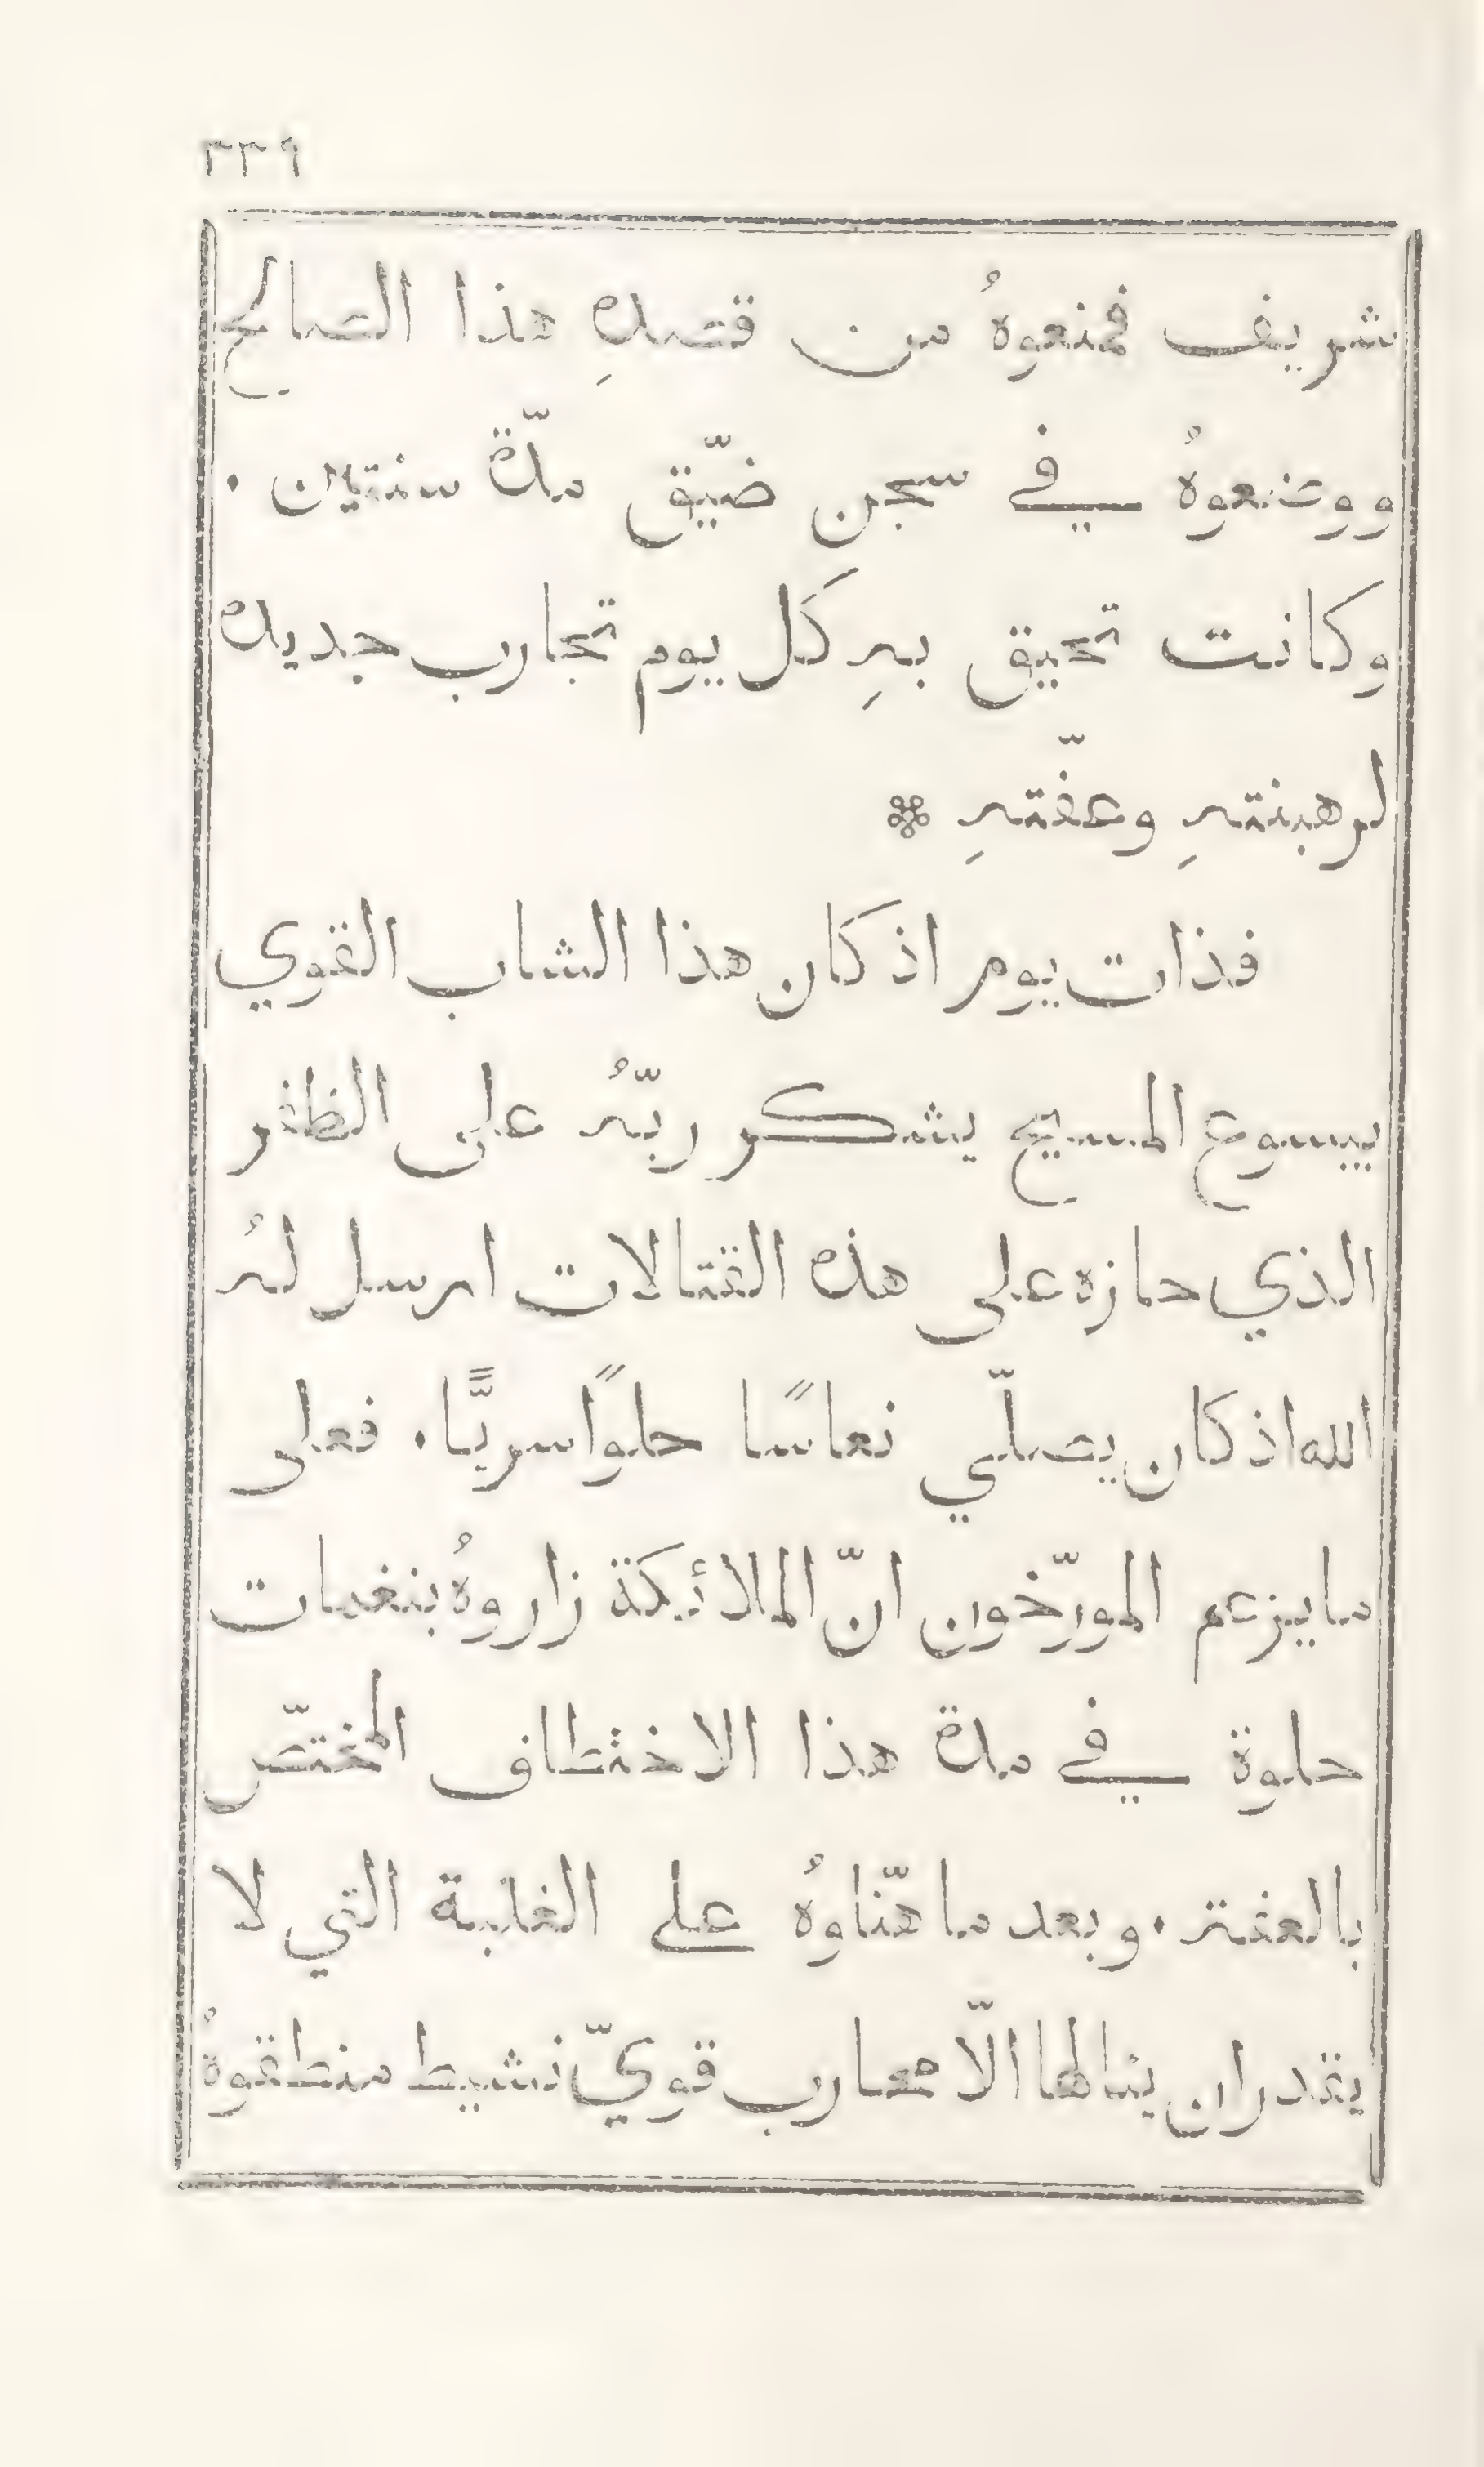 ٣٣٩
شريف فمنعوهُ من قصدهِ هذا الصالح
ووضعوهُ في سجن ضيّق مدّة سنتين ٠
وكانت تحيق بهِ كل يوم تجارب جديده
لرهبنتهِ وعفّتهِ ※
فذات يوم اذ كان هذا الشاب القوي
بيسوع المسيح يشكر ربّهُ على الظفر
الذي حازه على هذه القتالات ارسل لهُ
الله اذ كان يصلّي نعاسًا حلوًا سريًّا ٠ فعلى
ما يزعم المورّخون انّ الملائكة زاروهُ بنغمات
حلوة في مدة هذا الاختطاف المختصّ
بالعفة ٠ وبعد ما هنّاوهُ على الغلبة التي لا
يقدر ان ينالها الّا محارب قويّ نشيط منطقوهُ